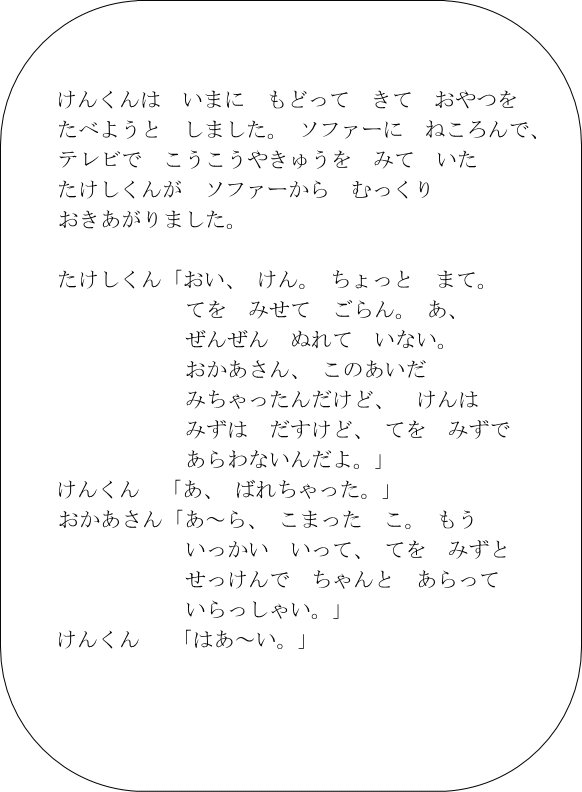 けんくんは　いまに　もどって　きて　おやつを
たべようと　しました。　ソファーに　ねころんで、
テレビで　こうこうやきゅうを　みて　いた
たけしくんが　ソファーから　むっくり
おきあがりました。
たけしくん「おい、　けん。　ちょっと　まて。
てを　みせて　ごらん。　あ、
ぜんぜん　ぬれて　いない。
おかあさん、　このあいだ
みちゃったんだけど、　けんは
みずは　だすけど、　てを　みずで
あらわないんだよ。」
けんくん　「あ、　ばれちゃった。」
おかあさん「あ～ら、　こまった　こ。　もう
いっかい　いって、　てを　みずと
せっけんで　ちゃんと　あらって
いらっしゃい。」
けんくん　「はあ～い。」